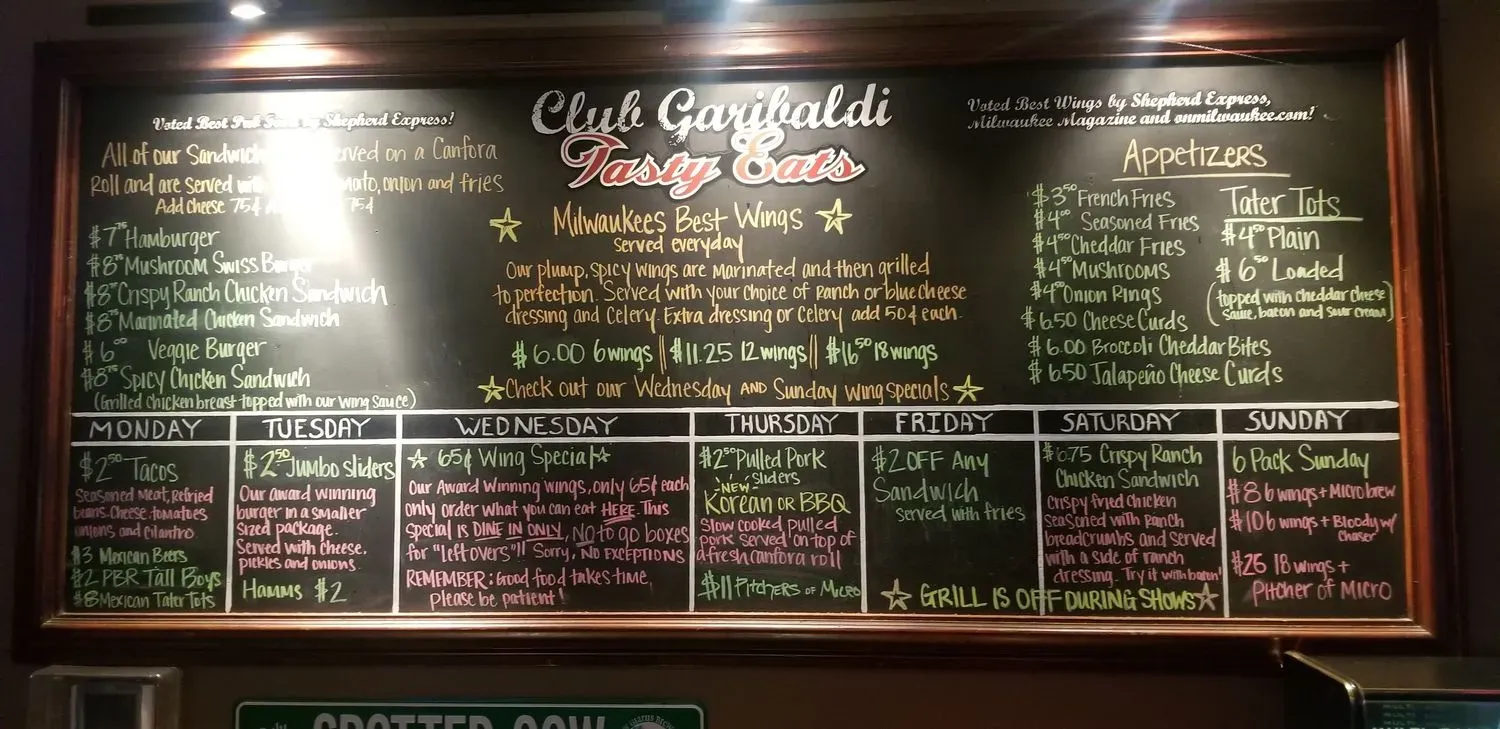 Voted Best Pub Food by Shepherd Express!
All of our Sandwich served on a Canfora
Roll and are served with tomato, onion and fries
Add cheese 75¢ 75¢
$7.75 Hamburger
$8.75 Mushroom Swiss Burger
$8.75 Crispy Ranch Chicken Sandwich
$8.75 Marinated Chicken Sandwich
$6.00 Veggie Burger
$8.75 Spicy Chicken Sandwich
(Grilled chicken breast topped with our wing sauce)
Club Garibaldi
Tasty Eats
Milwaukees Best Wings
served everyday
Our plump, spicy wings are marinated and then grilled
to perfection. Served with your choice of ranch or blue cheese
dressing and celery. Extra dressing or celery add 50¢ each.
$6.00 6 wings || $11.25 12 wings || $16.50 18 wings
Check out our Wednesday AND Sunday wing specials
Voted Best Wings by Shepherd Express,
Milwaukee Magazine and onmilwaukee.com!
Appetizers
$3.50 French Fries
$4.00 Seasoned Fries
$4.50 Cheddar Fries
$4.50 Mushrooms
$4.50 Onion Rings
$6.50 Cheese Curds
$6.00 Broccoli Cheddar Bites
$6.50 Jalapeño Cheese Curds
Tater Tots
$4.50 Plain
$6.50 Loaded
(topped with cheddar cheese
sauce, bacon and sour cream)
MONDAY
$2.50 Tacos
Seasoned meat, refried
beans, cheese, tomatoes
onions and cilantro
$3 Mexican Beers
$2 PBR Tall Boys
$8 Mexican Tater Tots
TUESDAY
$2.50 Jumbo Sliders
Our award winning
burger in a smaller
sized package.
Served with cheese,
pickles and onions.
Hamms $2
WEDNESDAY
65¢ Wing Special
Our Award Winning wings, only 65¢ each
only order what you can eat HERE. This
special is DINE IN ONLY, NO to go boxes
for "leftovers"!! Sorry, NO EXCEPTIONS
REMEMBER: Good food takes time,
please be patient!
THURSDAY
$2.50 Pulled Pork
Sliders
NEW
Korean OR BBQ
Slow cooked pulled
pork served on top of
a fresh canfora roll
$11 Pitchers of Micro
FRIDAY
$2 OFF Any
Sandwich
served with fries
SATURDAY
$6.75 Crispy Ranch
Chicken Sandwich
Crispy fried chicken
seasoned with ranch
breadcrumbs and served
with a side of ranch
dressing. Try it with bacon!
GRILL IS OFF DURING SHOWS
SUNDAY
6 Pack Sunday
$8 6 wings + Micro brew
$10 6 wings + Bloody w/
chaser
$26 18 wings +
Pitcher of Micro
SPOTTED COW